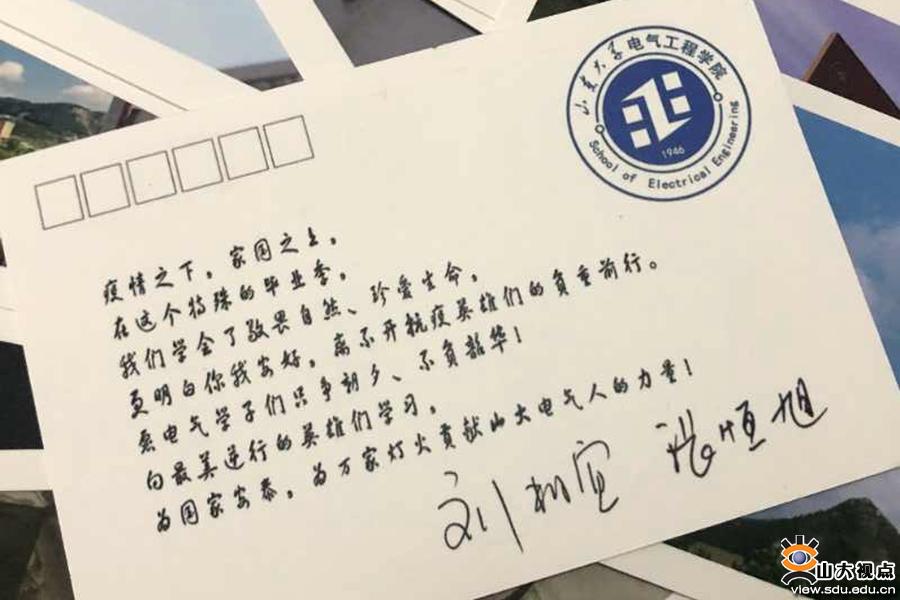 山东大学电气工程学院
1946
School of Electrical Engineering
疫情之下，家国之上，
在这个特殊的毕业季，
我们学会了敬畏自然、珍爱生命，
更明白你我安好，离不开抗疫英雄们的负重前行。
愿电气学子们只争朝夕、不负韶华！
向最美逆行的英雄们学习，
为国家安泰，为万家灯火贡献山大电气人的力量！
刘 张恒旭
山大视点
view.sdu.edu.cn